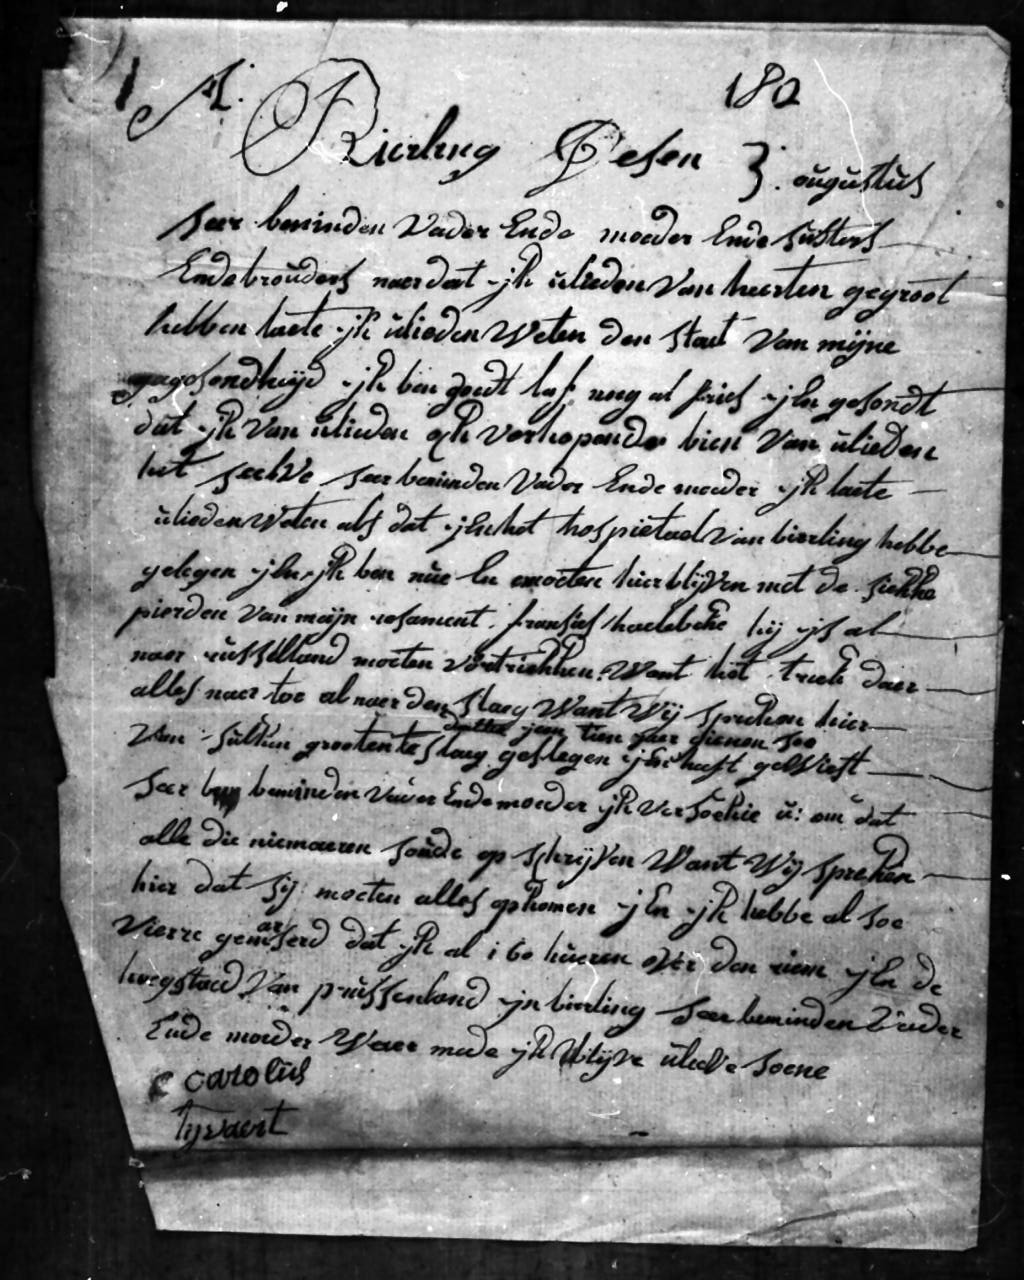 A: 182
Bierling Desen 3. augustus
seer beminden Vader Ende moeder Ende susters
Ende broüders naer dat jk ulieden Van herten gegroet
hebben laete jk ulieden Weten den staet Van mijne
gesondheijd jk ben godt lof nog al fries jEn gesondt
dat jk Van ulieden ok verhopende bien Van ulieden
het selve seer beminden Vader Ende moeder jk laete
ulieden Weten als dat jEn het hospietael Van bierling hebbe
gelegen jEn jk ben nüe En moeten hier blijven met de siekke
pierden Van meijn resament. fransies haelebeke hij js al
naer russelland moeten Vertriekken. Want het triek daer
alles naer toe al naer den slaeg Want Wij spreken hier
datter jem tien jaer gienen soo
Van sulken grootente slaeg geslegen jEn heeft geWiest
Seer beminden Vader Ende moeder jk Versoekie ü: om dat
alle die niemaeren soüde op schrijven Want Wij spreken
hier dat sij moeten alles opkomen jEn jk hebbe al soe
Vierre gemarserd dat jk al i60 hüeren over den riem jEn de
hoegstad Van prüssenland jn bierling seer beminden Vader
Ende moeder Waer mede jk blijve ulieve soene
carolus
tijvaert